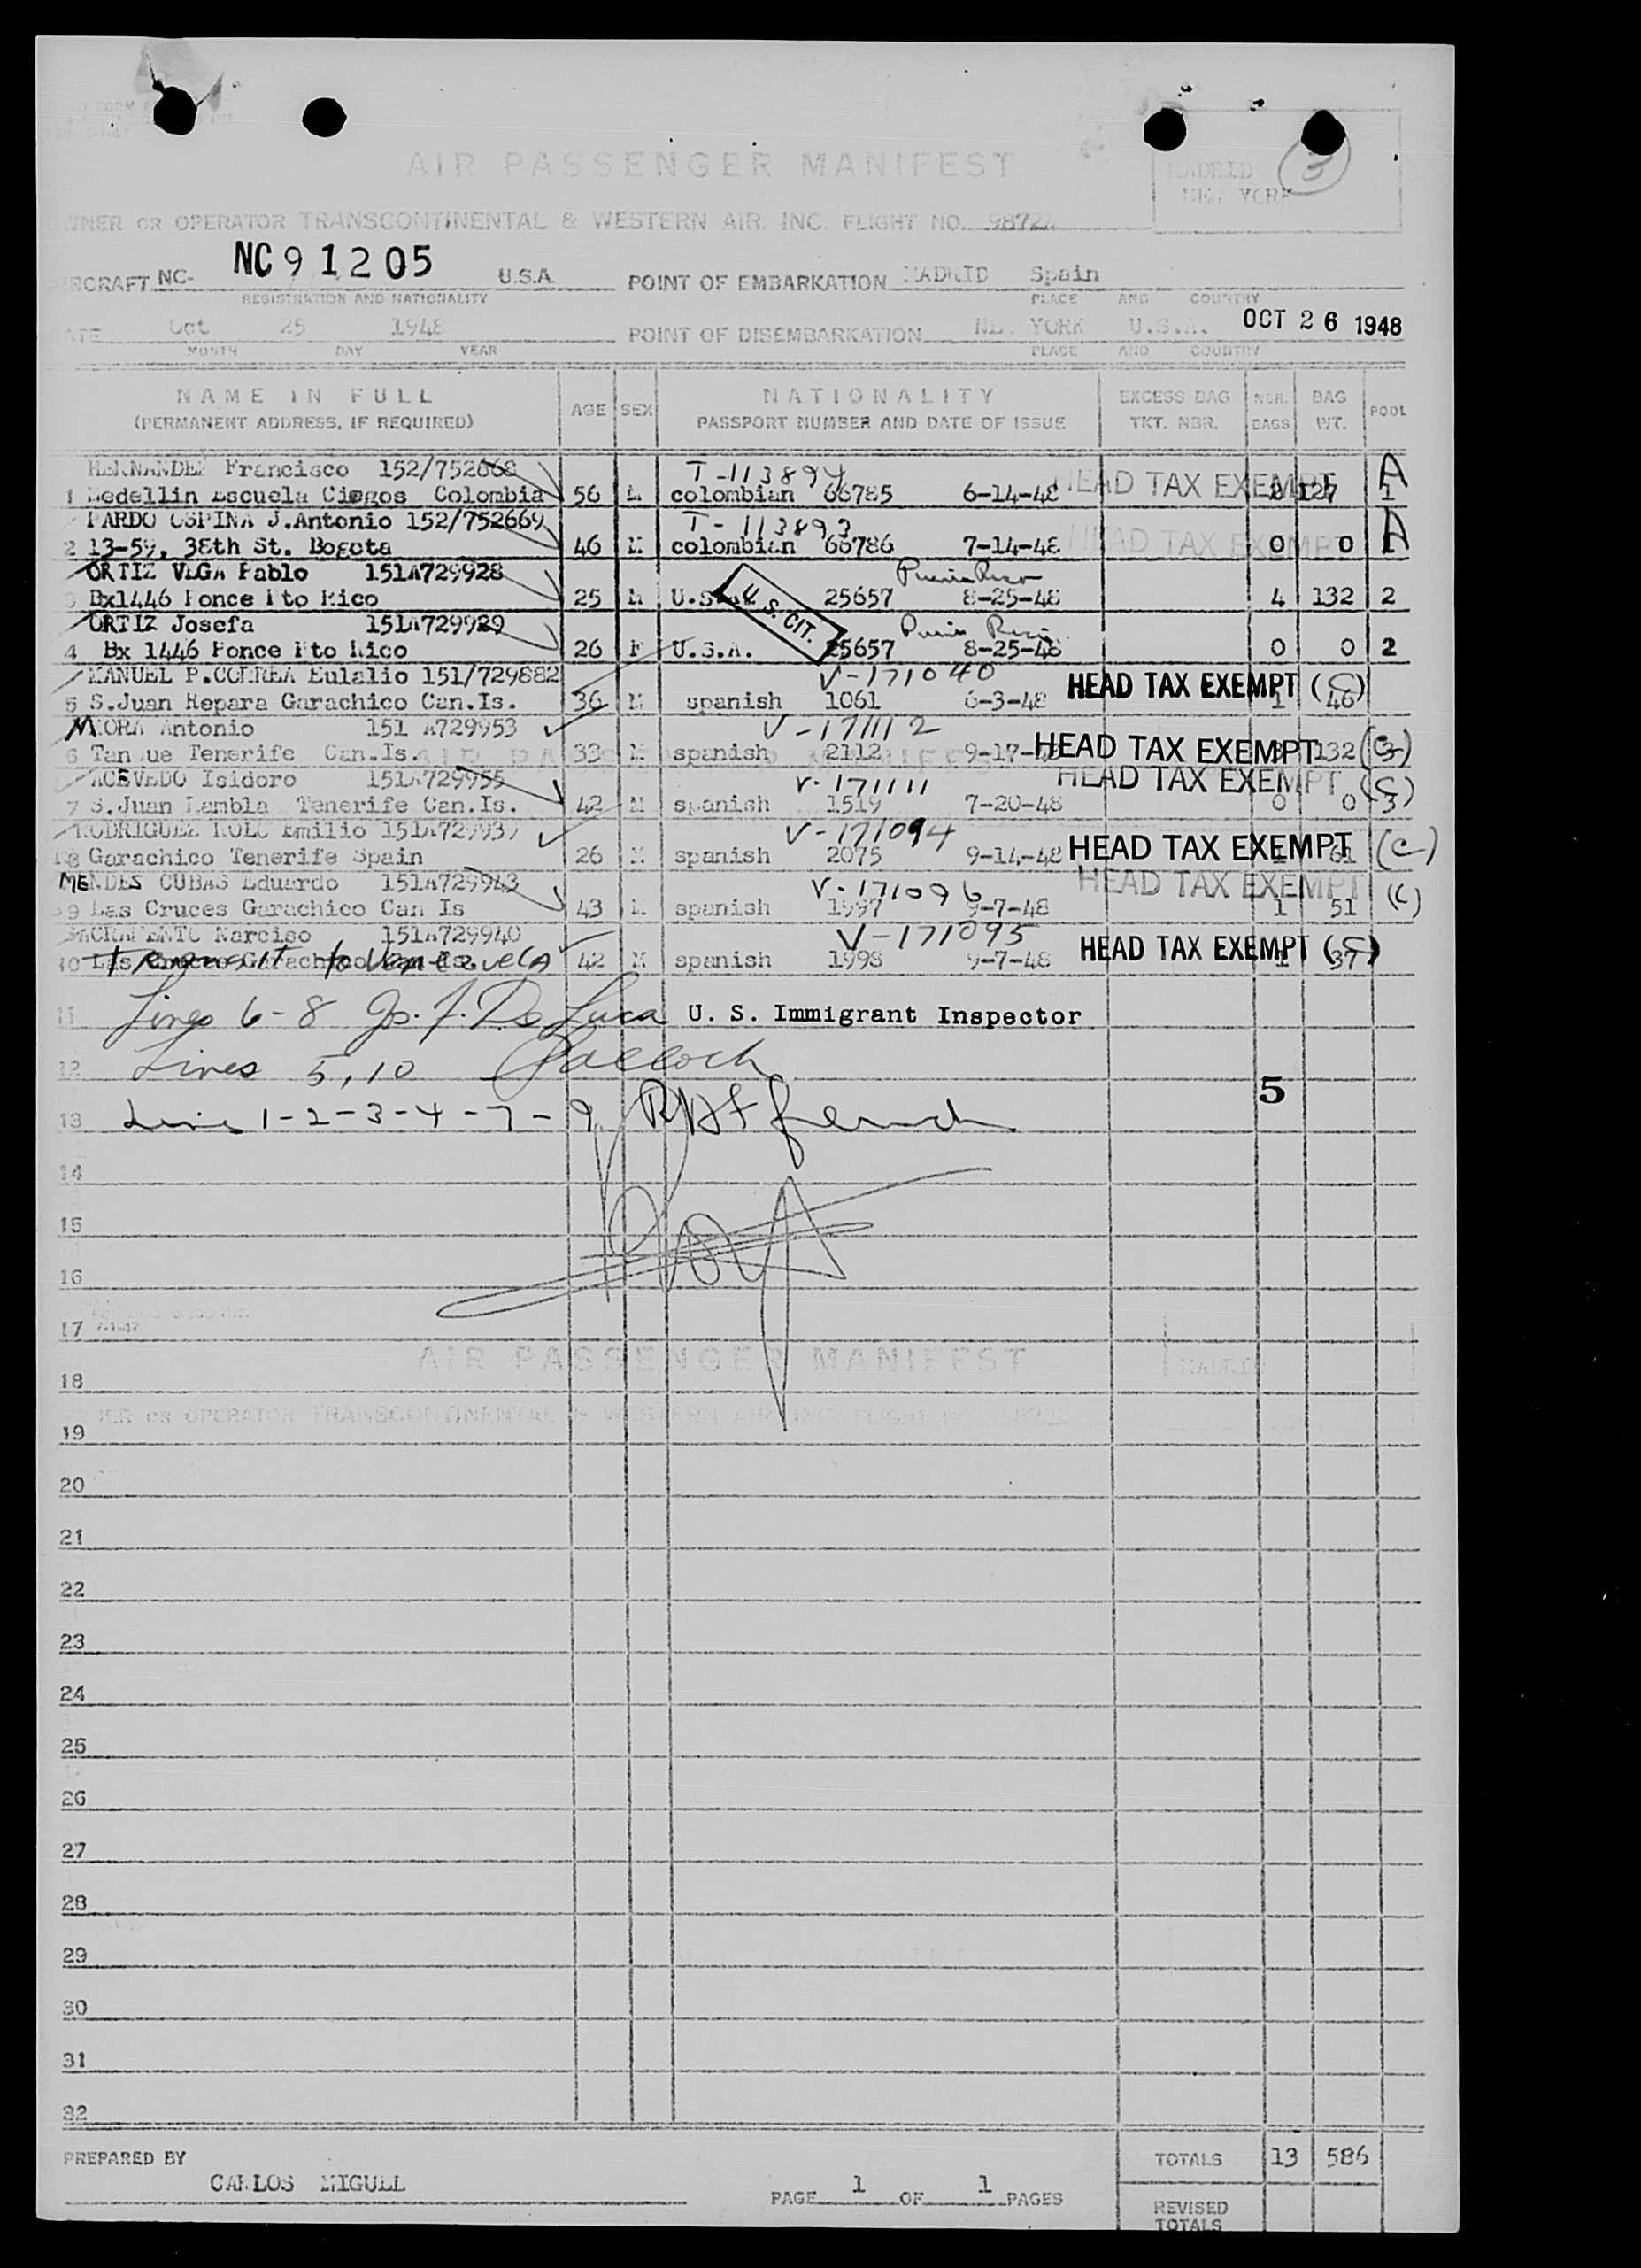 AIR PASSENGER MANIFEST
MADRID
NEW YORK
3
OWNER OR OPERATOR TRANSCONTINENTAL & WESTERN AIR. INC. FLIGHT NO.
AIRCRAFT NC- NC91205 U.S.A. POINT OF EMBARKATION MADRID Spain
REGISTRATION AND NATIONALITY PLACE AND COUNTRY
DATE Oct 25 1948 POINT OF DISEMBARKATION NEW YORK U.S.A. OCT 26 1948
MONTH DAY YEAR PLACE AND COUNTRY
NAME IN FULL AGE SEX NATIONALITY EXCESS BAG NBR. BAG POOL
(PERMANENT ADDRESS, IF REQUIRED) PASSPORT NUMBER AND DATE OF ISSUE TKT. NBR. BAGS WT.
HERNANDEZ Francisco 152/752668 T-113894 HEAD TAX EXEMPT A
1 Medellin Escuela Ciegos Colombia 56 M colombian 66785 6-14-48 127 1
PARDO OSPINA J.Antonio 152/752669 T-113893 HEAD TAX EXEMPT A
2 13-59, 38th St. Bogota 46 M colombian 66786 7-14-48 0 0
ORTIZ VEGA Pablo 151A729928 Puerto Rico
3 Bx1446 Ponce Pto Rico 25 M U.S.A. 25657 8-25-48 4 132 2
U.S. CIT.
ORTIZ Josefa 151A729929 Puerto Rico
4 Bx 1446 Ponce Pto Rico 26 F U.S.A. 25657 8-25-48 0 0 2
MANUEL P.CORREA Eulalio 151/729882 V-171040 HEAD TAX EXEMPT (C)
5 S.Juan Repara Garachico Can.Is. 36 M spanish 1061 6-3-48 1 46
MORA Antonio 151 A729953 V-171112 HEAD TAX EXEMPT (C)
6 Tanque Tenerife Can.Is. 33 M spanish 2112 9-17-48 132 3
ACEVEDO Isidoro 151A729955 V-171111 HEAD TAX EXEMPT (C)
7 S.Juan Rambla Tenerife Can.Is. 42 M spanish 1519 7-20-48 0 0 3
RODRIGUEZ ROLO Emilio 151A729939 V-171094 HEAD TAX EXEMPT (C)
8 Garachico Tenerife Spain 26 M spanish 2075 9-14-48 1 61
MENDES CUBAS Eduardo 151A729943 V-171096 HEAD TAX EXEMPT (C)
9 Las Cruces Garachico Can Is 43 M spanish 1997 9-7-48 1 51
SACRAMENTO Narciso 151A729940 V-171095 HEAD TAX EXEMPT (C)
10 Las Cruces Garachico Can Is 42 M spanish 1998 9-7-48 1 37
Transit to Venezuela
11 Lines 6-8 Jos. F. De Luca U. S. Immigrant Inspector
12 Lines 5,10
5
13 Lines 1-2-3-4-7-9
14
15
16
17
AIR PASSENGER MANIFEST
MADRID
18
OWNER OR OPERATOR TRANSCONTINENTAL & WESTERN AIR. INC. FLIGHT NO.
19
20
21
22
23
24
25
26
27
28
29
30
31
32
PREPARED BY TOTALS 13 586
CARLOS MIGUEL
PAGE 1 OF 1 PAGES
REVISED
TOTALS